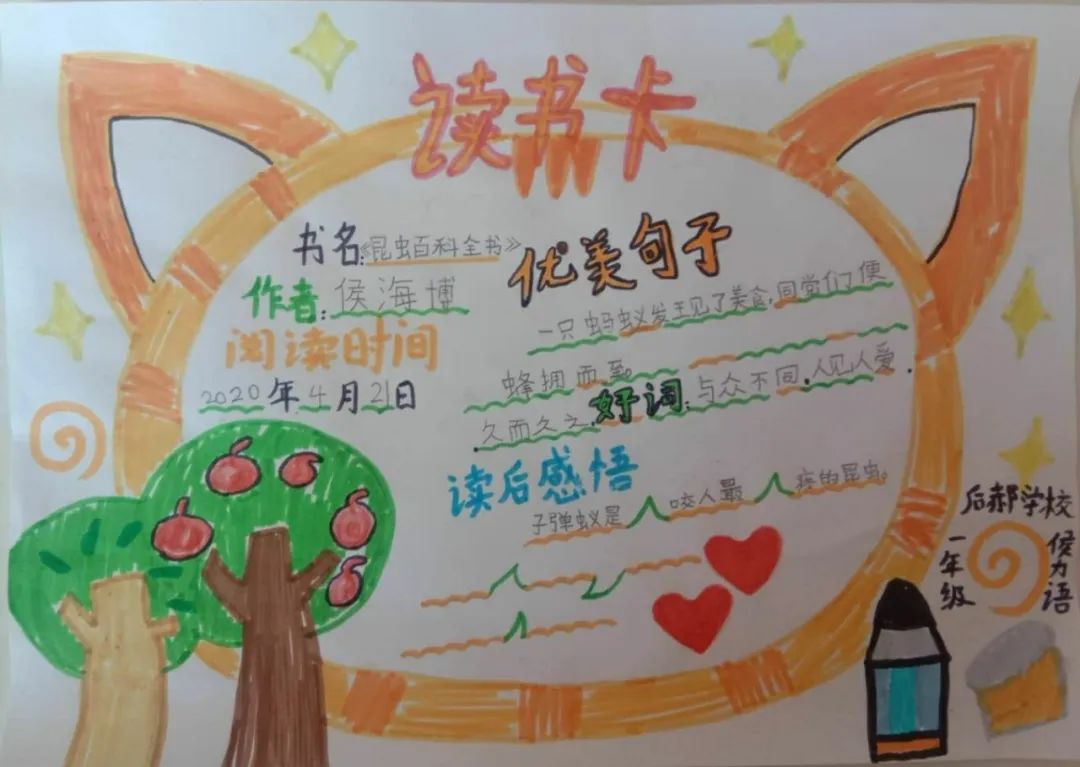 读书卡
书名:《昆虫百科全书》
作者:侯海博
阅读时间
2020年4月21日
优美句子
一只蚂蚁发王见了美食,同类们便
蜂拥而至。
好词:与众不同、人见人爱、
久而久之、
读后感悟
子弹蚁是 咬人最 疼的昆虫。
后郝学校
一年级
侯力语